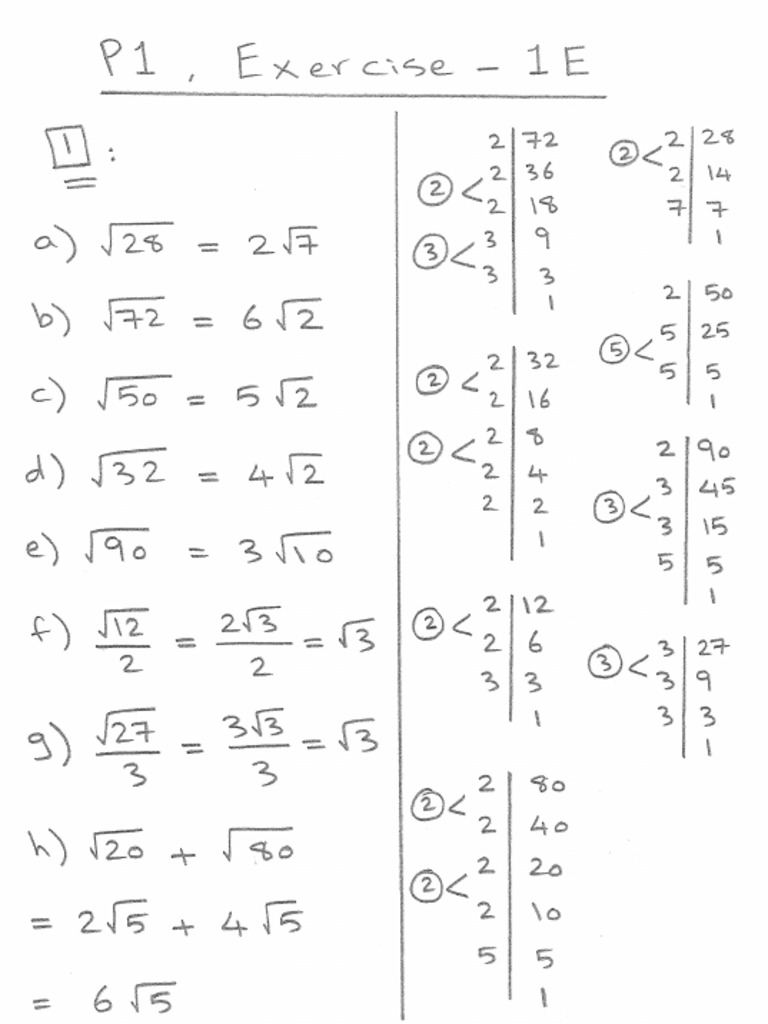 P1, Exercise - 1E
1 :
a) √28 = 2√7
b) √72 = 6√2
c) √50 = 5√2
d) √32 = 4√2
e) √90 = 3√10
f) √12/2 = 2√3/2 = √3
g) √27/3 = 3√3/3 = √3
h) √20 + √80
= 2√5 + 4√5
= 6√5
2 | 72
② < 2 | 36
2 | 18
③ < 3 | 9
3 | 3
1
② < 2 | 32
2 | 16
② < 2 | 8
2 | 4
2 | 2
1
② < 2 | 12
2 | 6
3 | 3
1
② < 2 | 80
2 | 40
② < 2 | 20
2 | 10
5 | 5
1
② < 2 | 28
2 | 14
7 | 7
1
2 | 50
⑤ < 5 | 25
5 | 5
1
2 | 90
③ < 3 | 45
3 | 15
5 | 5
1
③ < 3 | 27
3 | 9
3 | 3
1